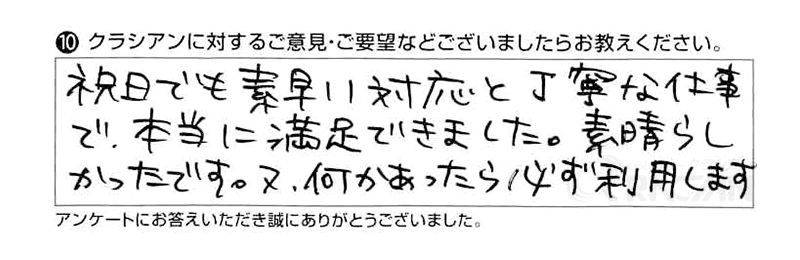 ⑩ クラシアンに対するご意見・ご要望などございましたらお教えください。
祝日でも素早い対応と丁寧な仕事
で、本当に満足できました。素晴らし
かったです。又、何かあったら必ず利用します
アンケートにお答えいただき誠にありがとうございました。